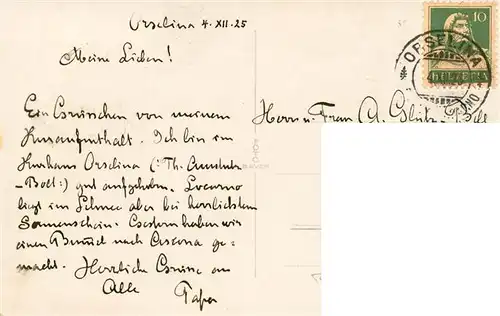 Orselina 4. XII. 25
Meine Lieben!
Ein Grüsschen von meinem
Kuraufenthalt. Ich bin im
Kurhaus Orselina (: Th.
Bott :) gut aufgehoben. Locarno
liegt im Schnee aber bei herrlichstem
Sonnenschein. Gestern haben wir
einen Bummel nach Ascona ge-
macht. Herzliche Grüsse an
Alle
Herrn u. Frau A.
10
HELVETIA
ORSELINA